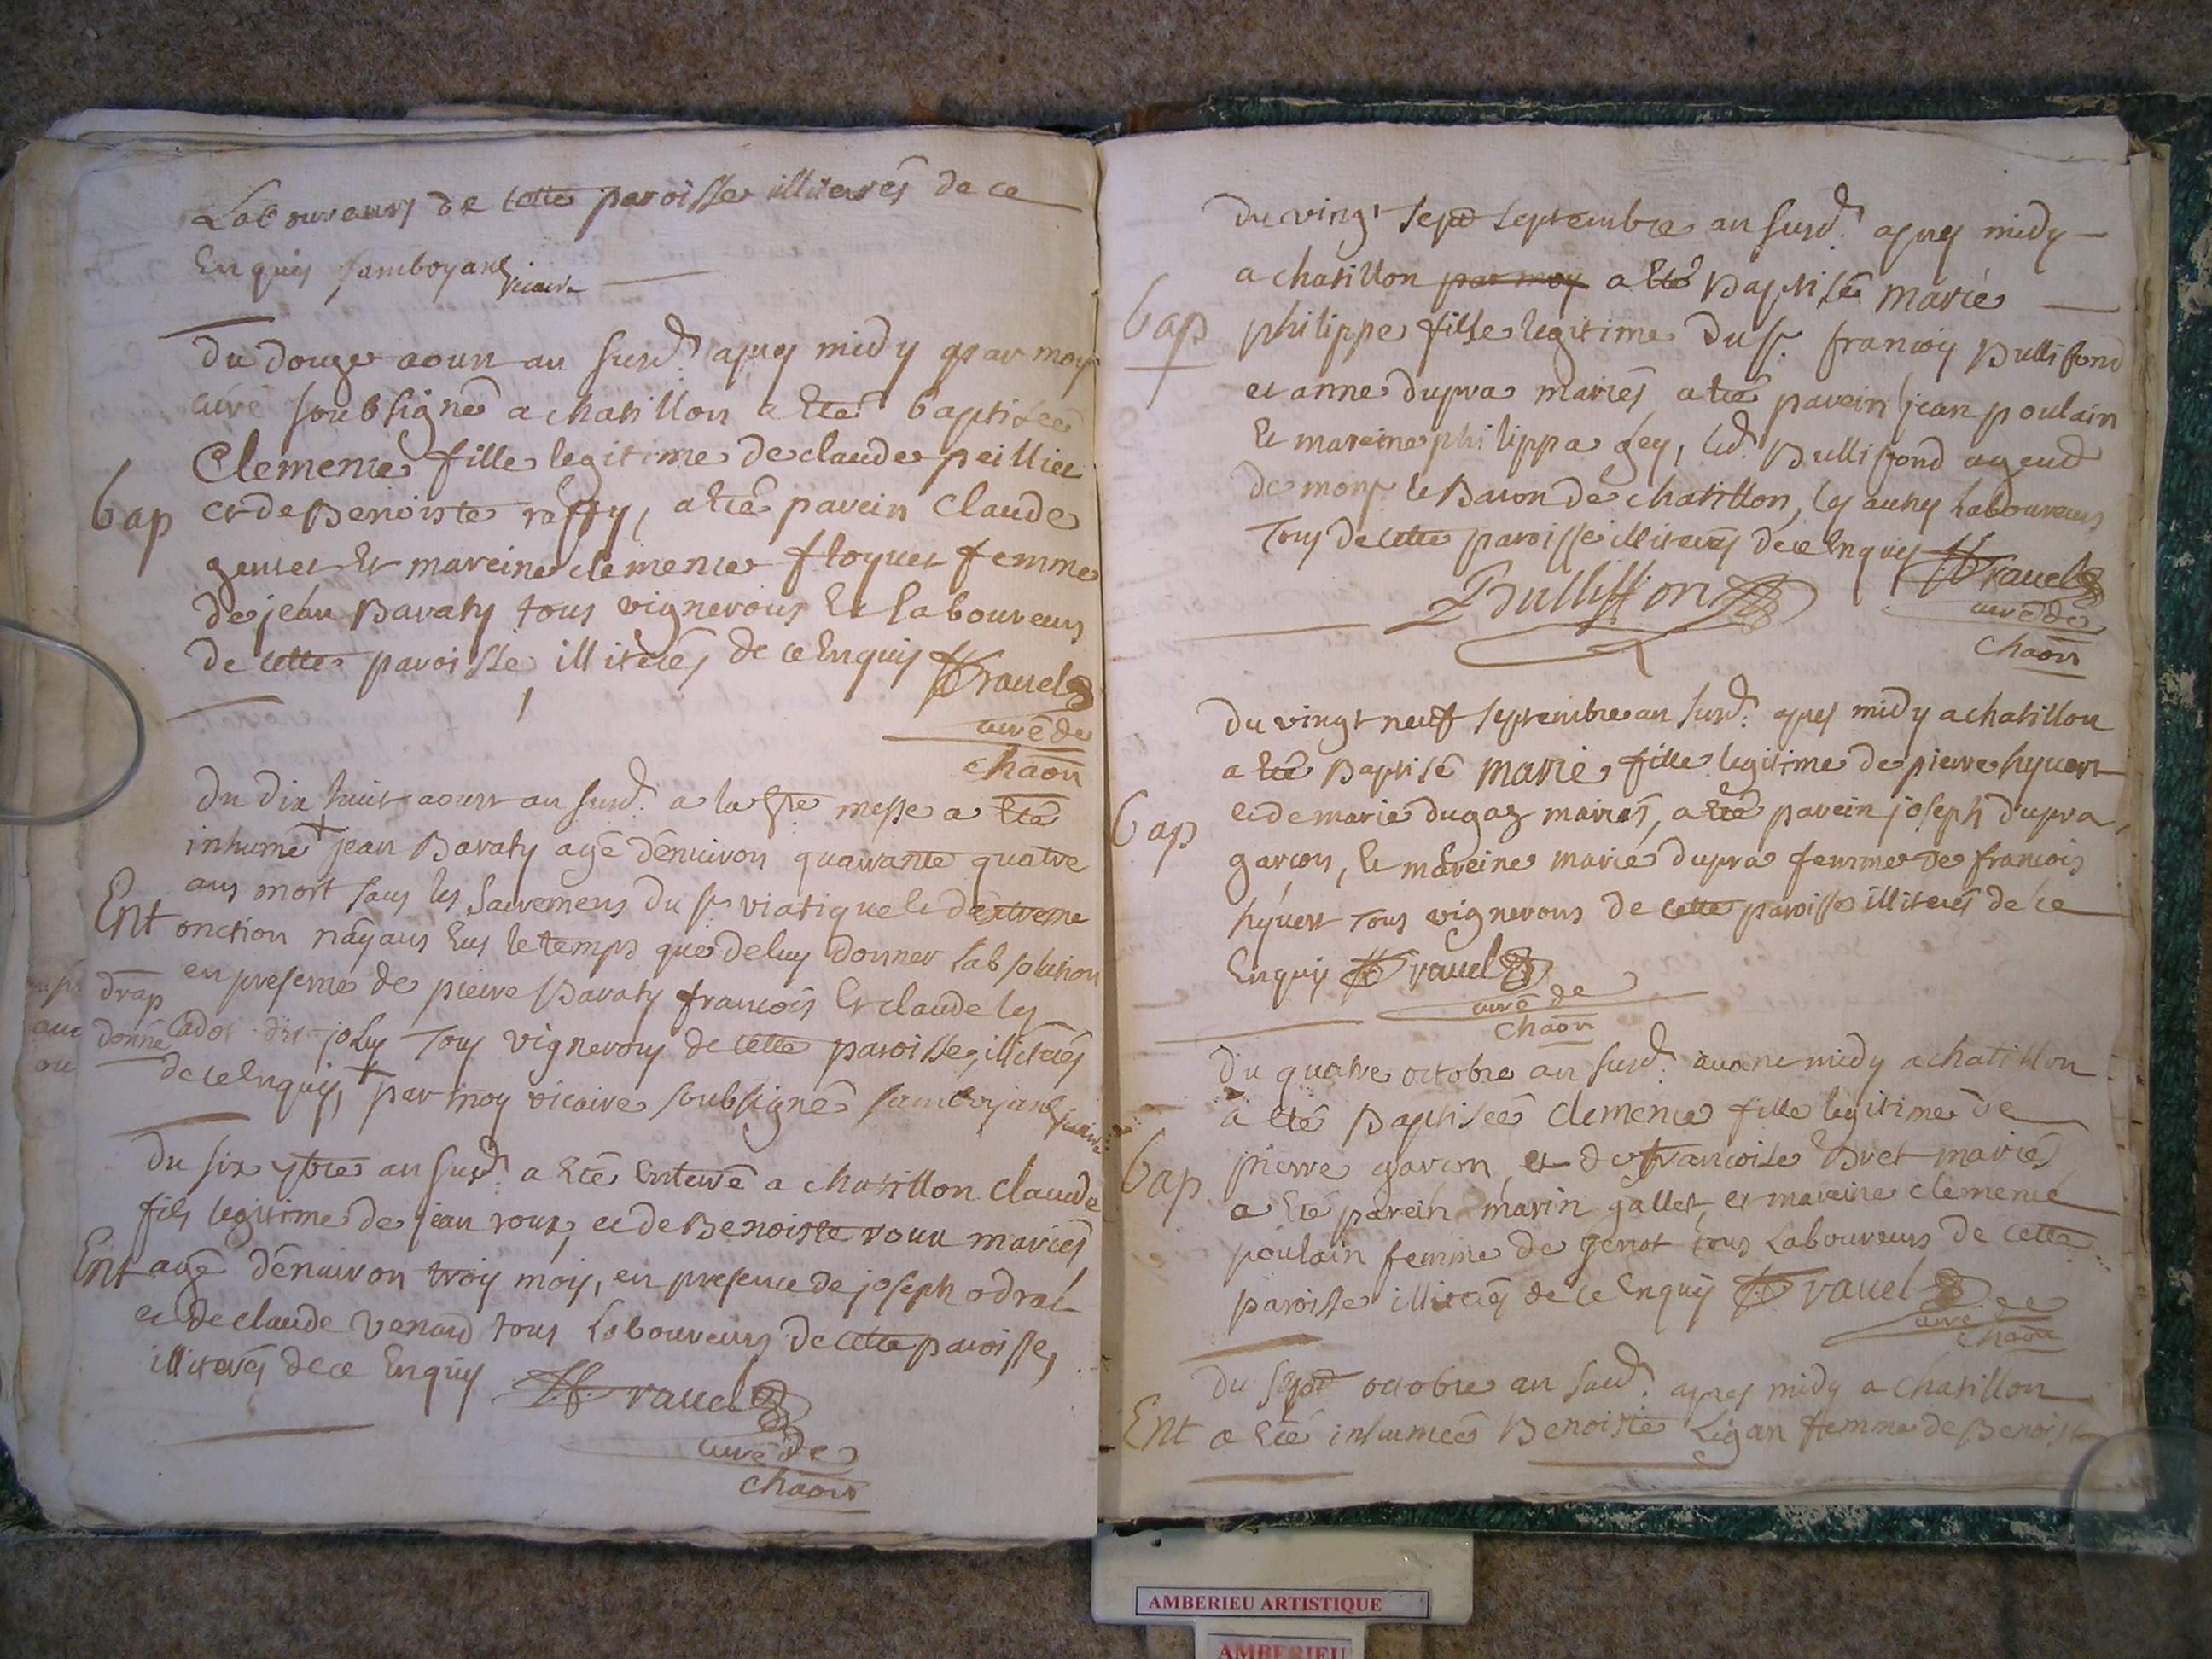 Laboureurs de cette paroisse illiterés de ce
Enquis Jamboyant vicaire
Du douze aoust an susd. apres midy par moy
curé soubsigné a chatillon a eté baptisée
Clemence fille legitime de claude peillier
bap
et de Benoiste raffy, a eté parein Claude
genet et mareine clemence floquet femme
de jean Baraty tous vignerons et laboureurs
de cette paroisse illiterés de ce Enquis Travel
curé de
chaon
Du dix huit aoust an susd. a la messe a eté
inhumé jean Baraty agé d'enuiron quarante quatre
ans mort sans les sacremens du st viatique et d'extreme
Ent
onction n'ayant eus le temps que de luy donner l'absolution
en presence de pierre Baraty francois et claude les
drap
donné
Cadot dit joly Tous vignerons de cette paroisse, illiterés
de ce Enquis, par moy vicaire soubsigné Jamboyant vicaire
Du six 7bre an susd. a eté Enterré a chatillon claude
fils legitime de jean roux, et de Benoiste roux mariés
Ent
agé d'enuiron trois mois, en presence de joseph odrat
et de claude venard tous Laboureurs de cette paroisse,
illiterés de ce Enquis Travel
curé de
chaon
Du vingt sept septembre an susd. apres midy
a chatillon par moy a eté Baptisée marie
bap
philippe fille legitime du sr. francois Bullifond
et anne dupra mariés a eté parein jean poulain
et mareine philippa gey, led. Bullifond agend
de monsr. le Baron de chatillon, les autres Laboureurs
Tous de cette paroisse illiterés de ce Enquis Travel
Bulliffon
curé de
chaon
Du vingt neuf septembre an susd. apres midy a chatillon
a eté Baptisé marie fille legitime de pierre hyvert
et de marie dugaz mariés, a eté parein joseph dupra,
bap
garçon, et mareine marie dupra femme de francois
hyvert Tous vignerons de cette paroisse illiterés de ce
Enquis Travel
curé de
chaon
Du quatre octobre an susd. auant midy a chatillon
a eté Baptisée clemence fille legitime de
bap
pierre garcon et de francoise Bret mariés
a eté parein marin gallet, et mareine clemence
poulain femme de genot tous Laboureurs de cette
paroisse illiterés de ce Enquis Travel
curé de
chaon
Du sept octobre an susd. apres midy a chatillon
Ent
a eté inhumée Benoiste Ligan femme de Benoist
AMBERIEU ARTISTIQUE
AMBERIEU